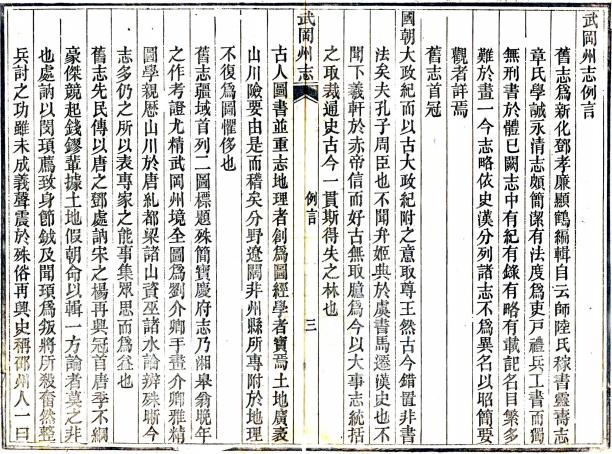 武岡州志例言
舊志爲新化鄧孝廉顯鶴編輯自云師陸氏稼書靈壽志
章氏學誠永清志頗簡潔有法度爲吏戶禮兵工書而獨
無刑書於體已闕志中有紀有錄有略有載記名目繁多
難於畫一今志略依史漢分列諸志不爲異名以昭簡要
觀者詳焉
舊志首冠
國朝大政紀而以古大政紀附之意取尊王然古今錯置非書
法矣夫孔子周臣也不聞弁姬典於虞書馬遷漢史也不
聞下羲軒於赤帝信而好古無取臆爲今以大事志統括
之取裁通史古今一貫斯得失之林也
武岡州志
例言
三
古人圖書並重志地理者創爲圖經學者寶焉土地廣袤
山川險要由是而稽矣分野遼闊非州縣所專附於地理
不復爲圖懼侈也
舊志疆域首列二圖標題殊簡寶慶府志乃湘皋翁晚年
之作考證尤精武岡州境全圖爲劉介卿手畫介卿雅精
圖學親歷山川於唐糺都梁諸山資巫諸水論辨殊晰今
志多仍之所以表專家之能事集眾思而爲益也
舊志先民傳以唐之鄧處訥宋之楊再興冠首唐季不綱
豪傑競起錢鏐輩據土地假朝命以輯一方論者莫之非
也處訥以閔頊薦致身節鉞及聞頊爲叛將所殺奮然整
兵討之功雖未成義聲震於殊俗再興史稱邵州人一曰